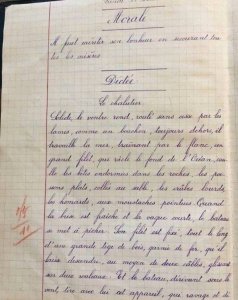 Morale
Il faut mériter son bonheur en secourant tou
tes les misères
Dictée
Le chalutier
Solide, le ventre rond, roulé sans cesse par les
lames, comme un bouchon, toujours dehors, il
travaille la mer, traînant par le flanc, un
grand filet, qui râcle le fond de l'Océan, cueille
les bêtes endormies dans les roches, les pois
sons plats, collés au sable, les crabes lourds,
les homards, aux moustaches pointues. Quand
la brise est fraîche et la vague courte, le bateau
se met à pêcher. Son filet est fixé, tout le long
d'une grande tige de bois, garnie de fer, qu'il
laisse descendre, au moyen de deux câbles, glissant
sur deux rouleaux. Et le bateau, dérivant sous le
vent, tire avec lui cet appareil, qui ravage et dé